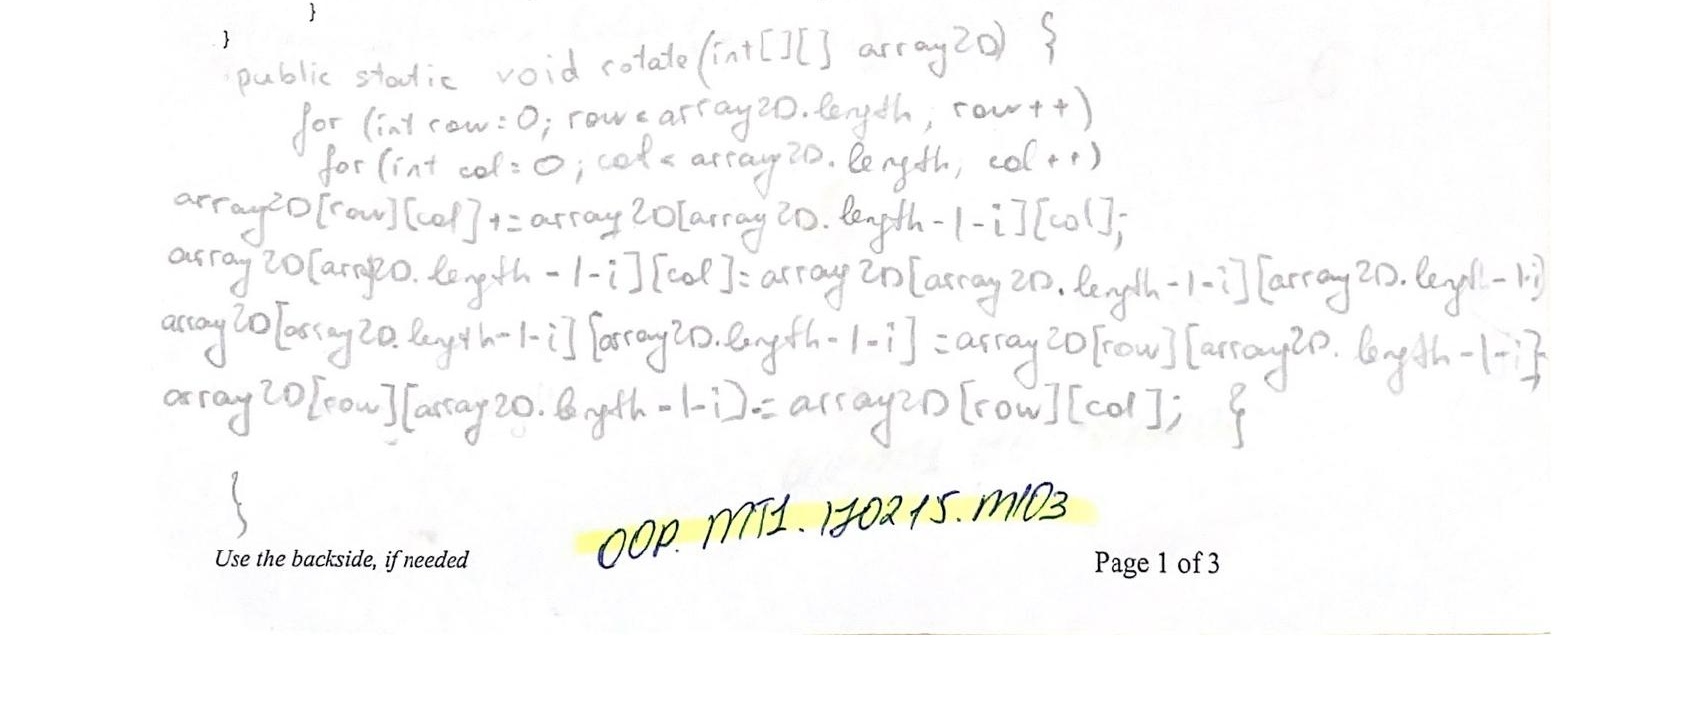 }
}
public static void rotate(int[][] array2D) {
for (int row=0; row<array2D.length; row++)
for (int col=0; col<array2D.length; col++)
array2D[row][col]+=array2D[array2D.length-1-i][col];
array2D[array2D.length-1-i][col]=array2D[array2D.length-1-i][array2D.length-1-i]
array2D[array2D.length-1-i][array2D.length-1-i]=array2D[row][array2D.length-1-i];
array2D[row][array2D.length-1-i]=array2D[row][col]; }
}
OOP.MT1.170215.M103
Use the backside, if needed
Page 1 of 3